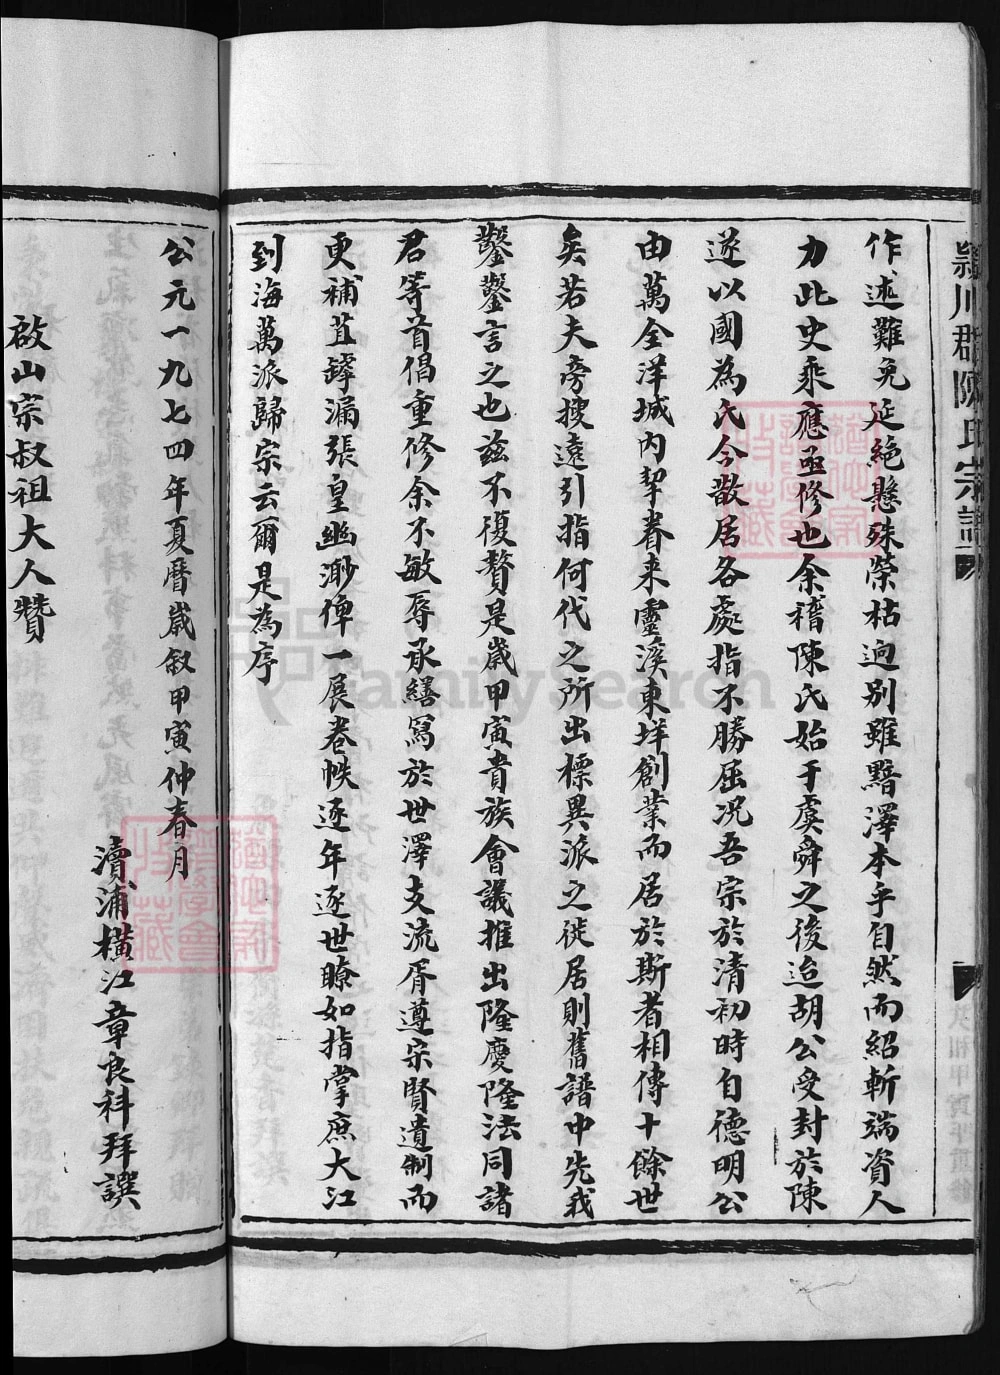 潁川郡陳氏宗譜
作述難免延絕懸殊榮枯逈別雖黯澤本乎自然而紹斬端資人
力此史乘應亟修也余稽陳氏始于虞舜之後迨胡公受封於陳
遂以國為氏今散居各處指不勝屈況吾宗於清初時自德明公
由萬全洋城內挈眷来靈溪東垟創業而居於斯者相傳十餘世
矣若夫旁搜遠引指何代之所出標異派之徙居則舊譜中先我
鑿鑿言之也茲不復贅是歲甲寅貴族會議推出隆慶隆法同諸
君等首倡重修余不敏辱承繕寫於世澤支流胥遵宗賢遺制而
更補苴罅漏張皇幽渺俾一展卷帙逐年逐世瞭如指掌庶大江
到海萬派歸宗云爾是為序
公元一九七四年夏曆歲敘甲寅仲春月
瀆浦橫江章良科拜譔
啟山宗叔祖大人贊
FamilySearch